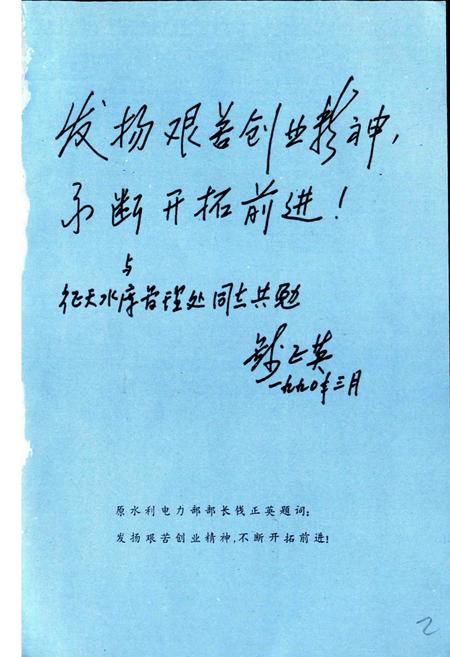 发扬艰苦创业精神，
不断开拓前进！
与
征天水库管理处同志共勉
钱正英
一九九〇年三月
原水利电力部部长伐正英题词：
发扬艰苦创业精神，不断开拓前进！
2